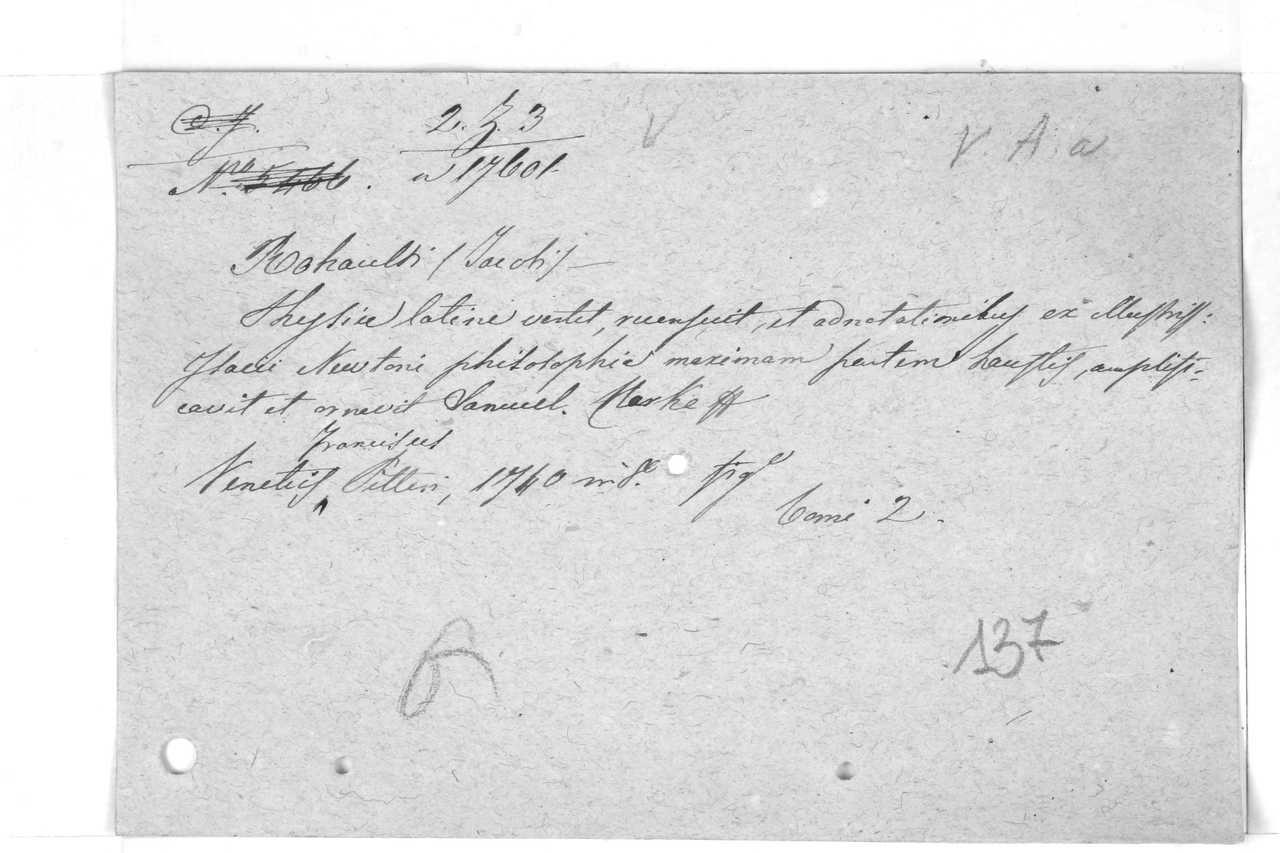 2. Z. 3 V V A. a
Nro 5466. a 17601
Rohaulti (Jacobi) —
Physica latine vertit, recensuit, et adnotationibus ex illustriss:
Isaaci Newtoni philosophia maximam partem haustis, amplifi-
cavit et ornavit Samuel. Clarke
Franciscus
Venetiis, Pitteri, 1740 in 8º. fig.
Tomi 2.
137